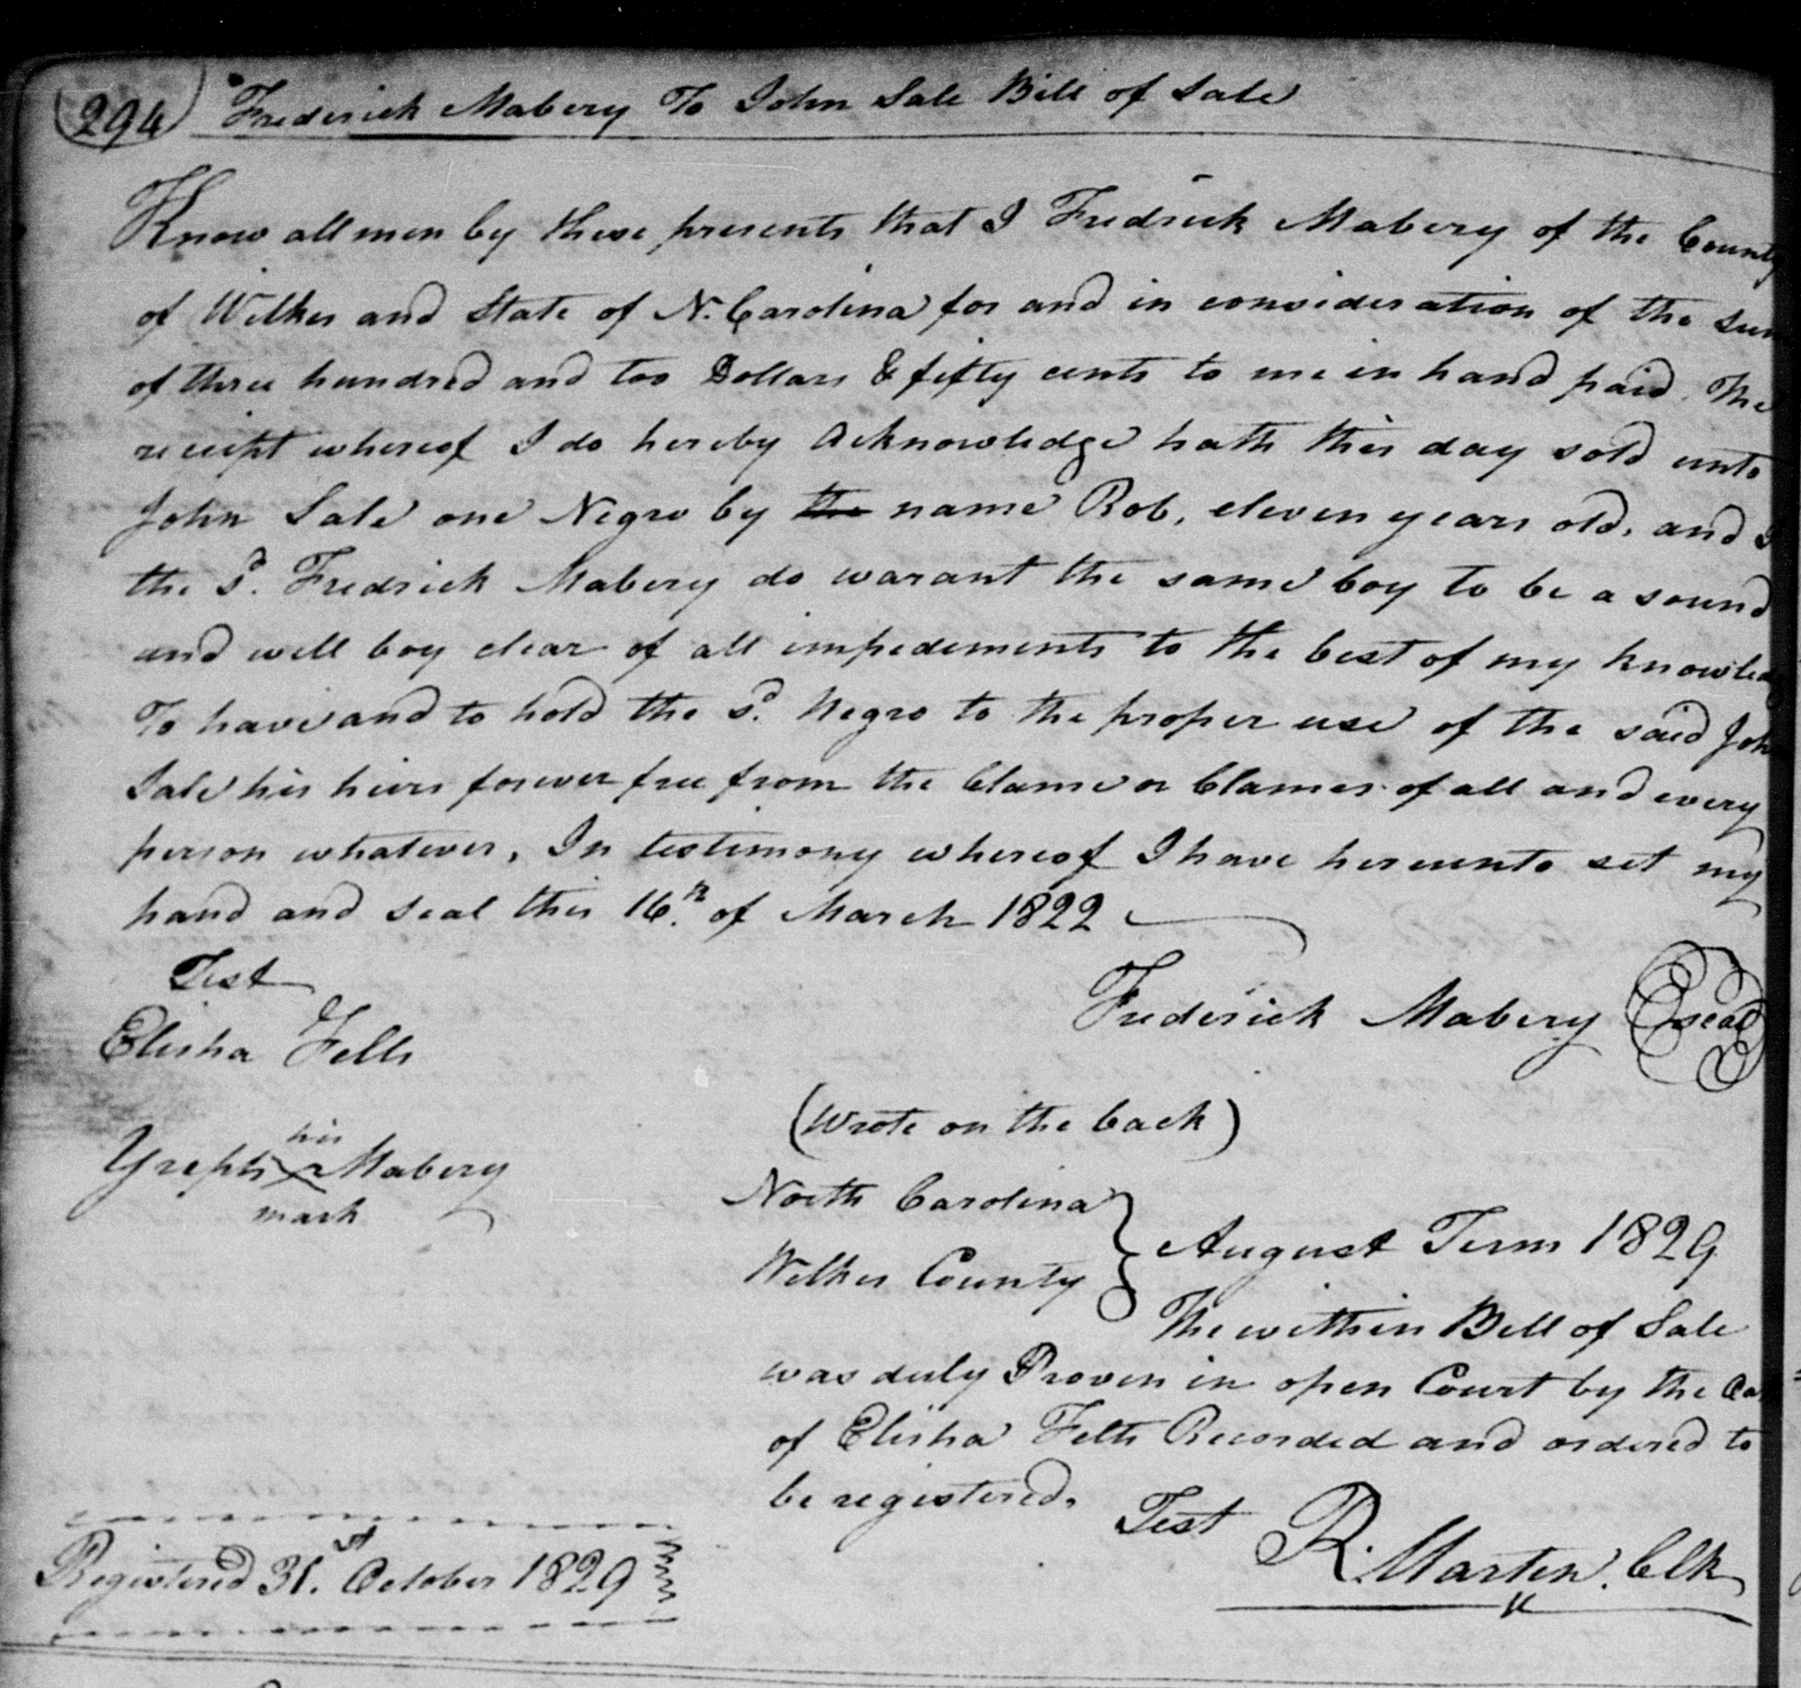 294 Frederick Mabery To John Sale Bill of Sale
Know all men by these presents that I Fredrick Mabery of the County
of Wilkes and State of N. Carolina for and in consideration of the sum
of three hundred and too Dollars & fifty cents to me in hand paid. The
receipt whereof I do hereby Acknowledge hath this day sold unto
John Sale one Negro by the name Rob, eleven years old, and I
the sd. Fredrick Mabery do warant the same boy to be a sound
and well boy clear of all impediments to the best of my knowledg
To have and to hold the sd. Negro to the proper use of the said John
Sale his hiers forever free from the Clame or Clames of all and every
person whatever, In testimony whereof I have hereunto set my
hand and seal this 16th of March 1822
Test
Frederick Mabery seal
Elisha Felts
his
Mabery
mark
(Wrote on the back)
North Carolina
Wilkes County
August Term 1829
The within Bill of Sale
was duly Proven in open Court by the Oa
of Elisha Felts Recorded and ordered to
be registered.
Test
R. Martin Clk
Registered 31.st October 1829